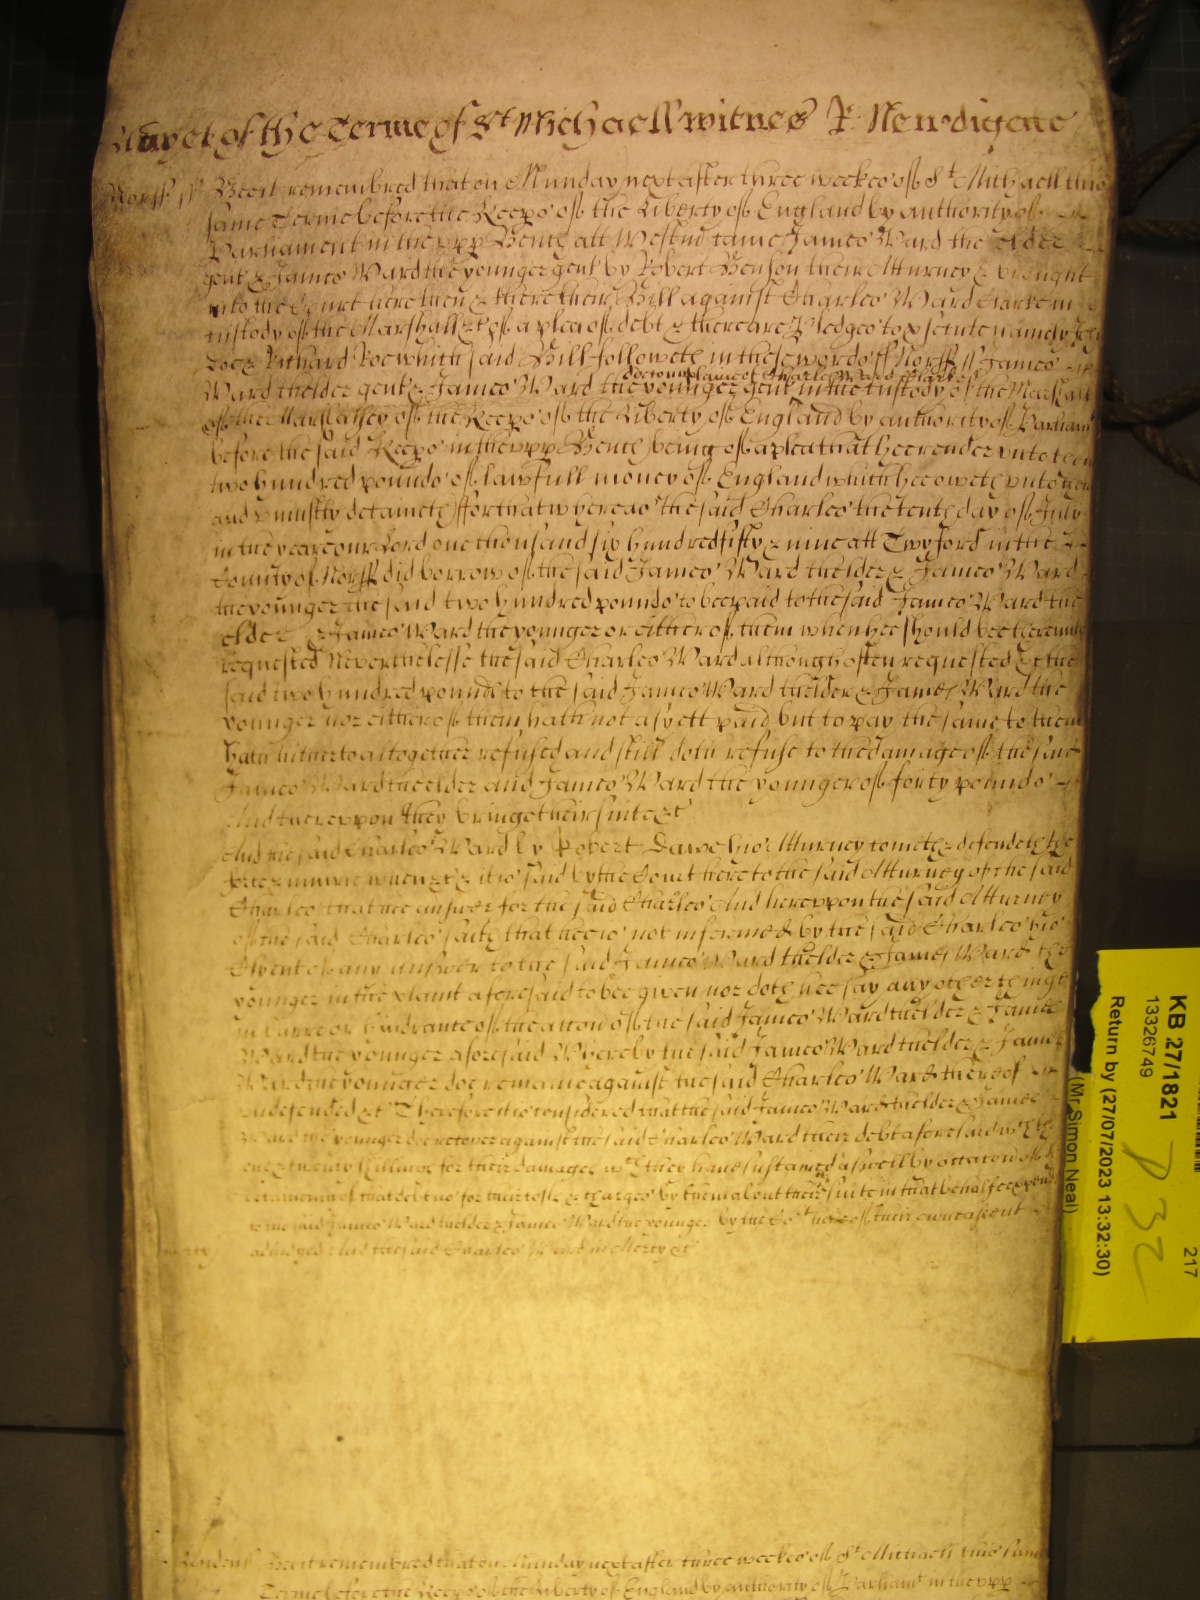 yet of the Terme of St Michaell witnes R: Newdigate
Norff ss Bee it remembred that on Munday next after three weekes of St Michaell this
same Terme before the Keeps of the Liberty of England by authority of
Parliament in the upp Bench att Westm came James Ward the elder
gent & James Ward the younger gent by Robert Benson their Atturney & brought
into the Court here then & there their Bill against Charles Ward Clarke in
custody of the Marshall &c of a plea of debt & there are Pledges to psecute namely John
Doe & Richard Roe which said Bill followeth in these words ss Norff ss James
complaine of Charles Ward Clarke
Ward thelder gent & James Ward the younger gent in the custody of the Marshall
of the Marshalsey of the Keeps of the Liberty of England by authority of Parliam
before the said Keeps in the upp Bench being of a plea that hee render unto them
two hundred pounds of lawfull money of England which hee oweth unto them
and uniustly detaineth ffor that whereas the said Charles the tenth day of July
in the yeare our Lord one thousand six hundred fifty & nine att Twyford in the
County of Norff did borrow of the said James Ward thelder & James Ward
the younger the said two hundred pounds to bee paid to the said James Ward the
elder & James Ward the younger or either of them when hee should bee thereunto
requested Neverthelesse the said Charles Ward although often requested &c the
said two hundred pounds to the said James Ward thelder & James Ward the
younger nor either of them hath not as yett paid but to pay the same to them
hath hitherto altogether refused and still doth refuse to the damage of the said
James Ward the elder and James Ward the younger of forty pounds
And thereuppon they bringe their suite &c
And the said Charles Ward by Robert Dawe his Atturney cometh & defendeth the
force & iniurie when &c & it is said by the Court here to the said Atturney of the said
Charles that hee answer for the said Charles And hereuppon the said Atturney
of the said Charles saith that hee is not informed by the said Charles his
Clyent of any answer to the said James Ward thelder & James Ward the
younger in the plaint aforesaid to bee given nor doth hee say any other thinge
in barre or hindrance of the accon of the said James Ward thelder & James
Ward the younger aforesaid Whereby the said James Ward thelder & James
Ward the younger doe remaine against the said Charles Ward thereof
undefended &c Therefore it is considered that the said James Ward thelder & James
Ward the younger doe recover against the said Charles Ward their debt aforesaid
twenty shillings for their damages wch they have sustained aswell by occacon of
detaineing of that debt as for their costs & charges by them about their suite in that behalfe expended
to the said James Ward thelder & James Ward the younger by the Cort here of their owne assent
adiudged And the said Charles Ward in Mercy &c
London ss Bee it remembred that on Munday next after three weekes of St Michaell this same
Terme before the Keeps of the Liberty of England by authority of Parliamt in the upp
KB 27/1821
13326749
217
Return by (27/07/2023 13:32:30)
(Mr Simon Neal)